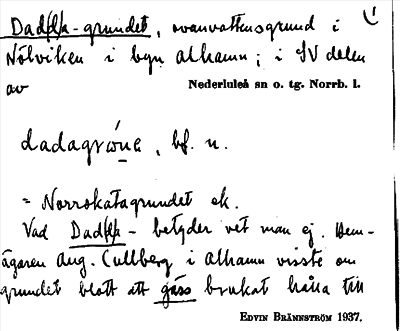 Dadda-grundet, ovanvattensgrund i
Nölviken i byn Alhamn; i SV delen
av Nederluleå sn o. tg. Norrb. l.
dadagrọ̈nę, bf. n.
= Norrskatagrundet ek.
Vad Dadda- betyder vet man ej. Hem-
ägaren Aug. Cullberg i Alhamn visste om
grundet blott att gäss brukat hålla till
EDVIN BRÄNNSTRÖM 1937.